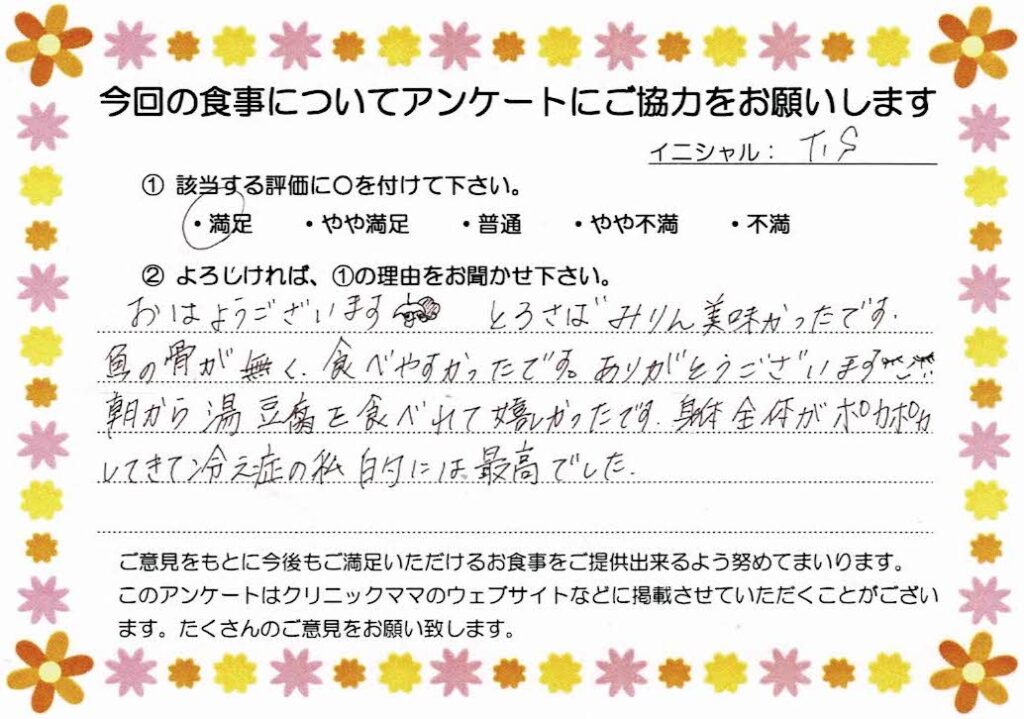 今回の食事についてアンケートにご協力をお願いします
イニシャル： T.S
① 該当する評価に〇を付けて下さい。
・満足 ・やや満足 ・普通 ・やや不満 ・不満
② よろしければ、①の理由をお聞かせ下さい。
おはようございます とろさばみりん美味かったです.
魚の骨が無く、食べやすかったです。ありがとうございます
朝から湯豆腐を食べれて嬉しかったです. 身体全体がポカポカ
してきて冷え症の私的には最高でした.
ご意見をもとに今後もご満足いただけるお食事をご提供出来るよう努めてまいります。
このアンケートはクリニックママのウェブサイトなどに掲載させていただくことがござい
ます。たくさんのご意見をお願い致します。